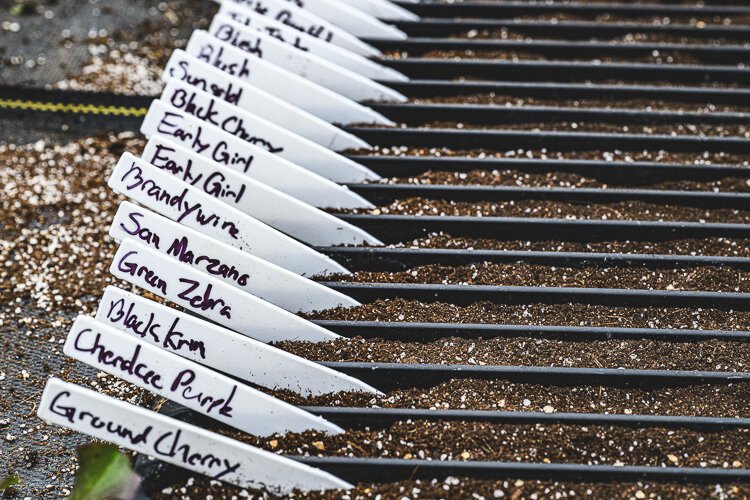 Blush
Blush
Sungold
Black Cherry
Early Girl
Early Girl
Brandywine
San Marzano
Green Zebra
Black Krim
Cherokee Purple
Ground Cherry